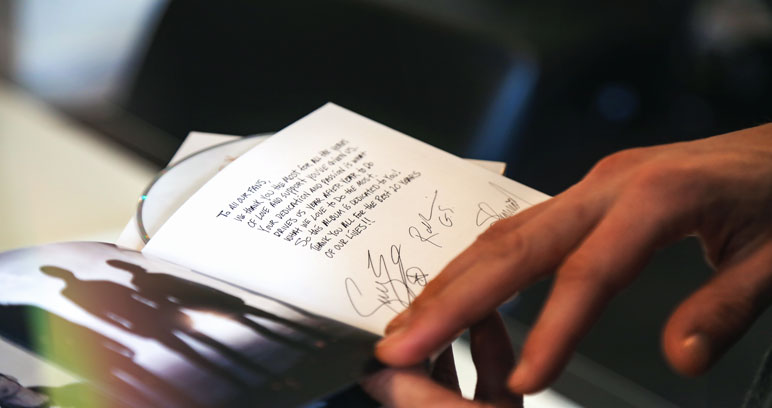 TO All OUR FANS,
WE THANK YOU THE MOST FOR All THE YEARS
OF LOVE AND SUPPORT YOU'VE GIVEN US.
YOUR DEDICATION AND PASSION IS WHAT
DRIVES US YEAR AFTER YEAR TO DO
WHAT WE LOVE TO DO THE MOST.
SO THIS ALBUM IS DEDICATED TO YOU.
THANK YOU ALL FOR THE BEST 20 YEARS
OF OUR LIVES!!